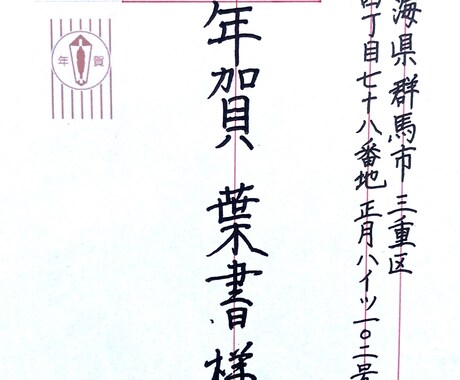 海県群馬市三重区
四丁目七十八番地 正月ハイツ一〇二号
年賀 葉書様
年賀